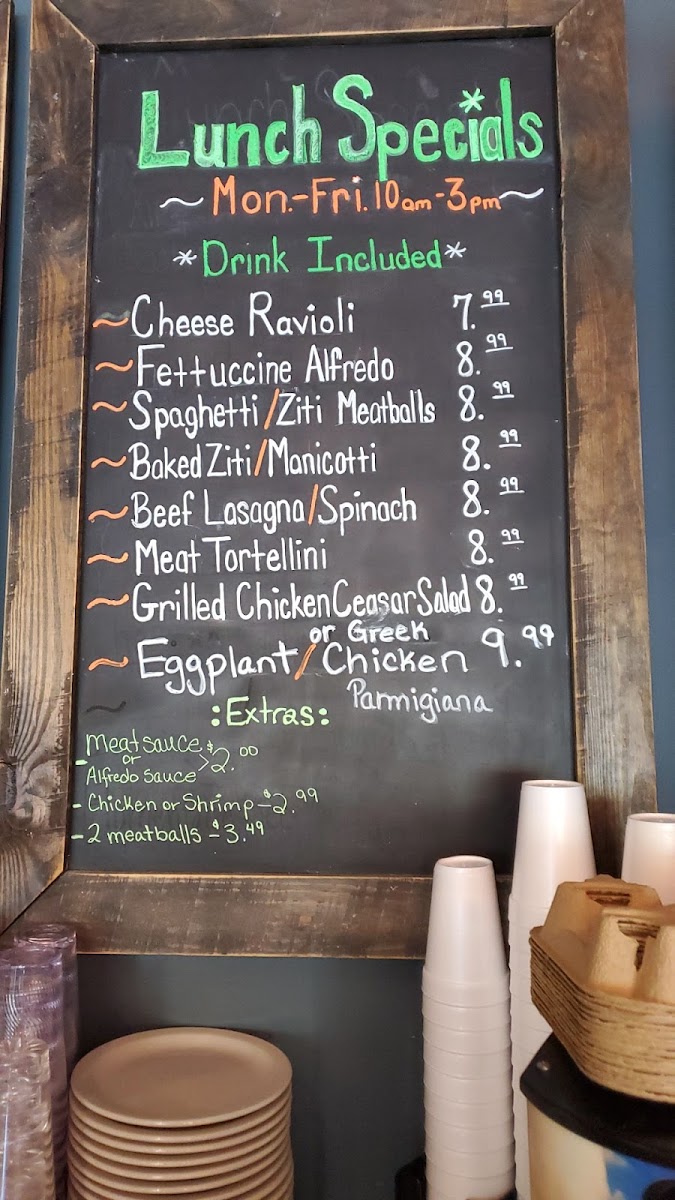 Lunch Specials
~Mon.-Fri. 10am-3pm~
*Drink Included*
~Cheese Ravioli 7.99
~Fettuccine Alfredo 8.99
~Spaghetti/Ziti Meatballs 8.99
~Baked Ziti/Manicotti 8.99
~Beef Lasagna/Spinach 8.99
~Meat Tortellini 8.99
~Grilled Chicken Ceasar Salad 8.99
or Greek
~Eggplant/Chicken 9.99
Parmigiana
:Extras:
-Meat sauce
or
Alfredo sauce >$2.00
-Chicken or Shrimp-$2.99
-2 meatballs-$3.49